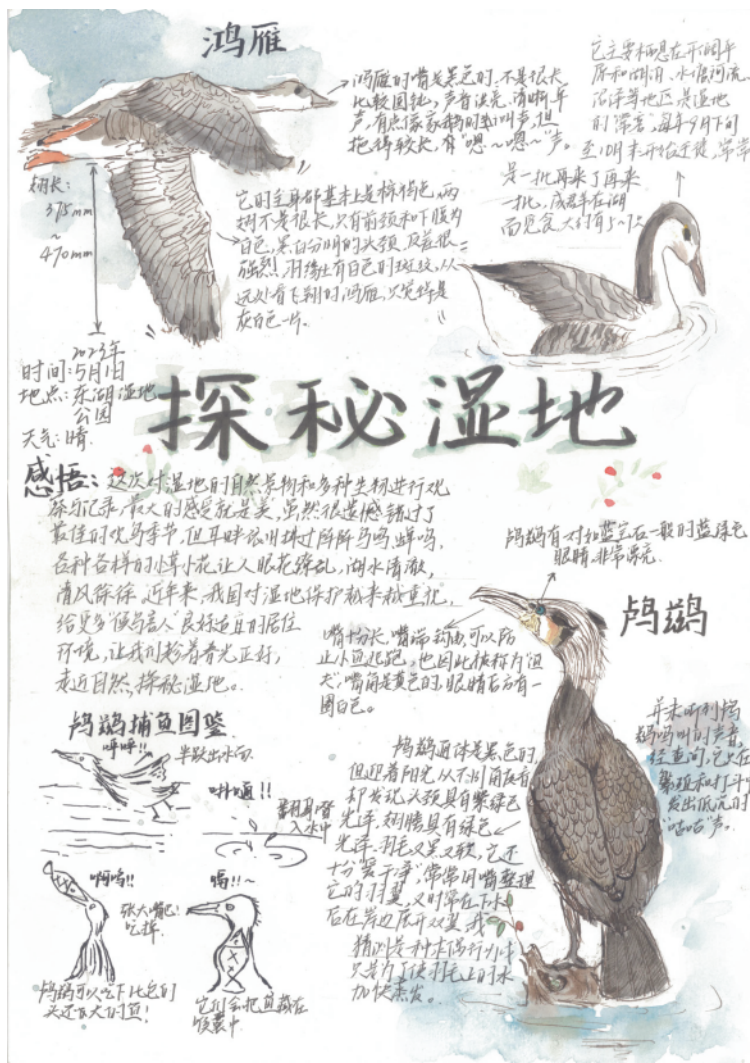 鸿雁
鸿雁的嘴是黑色的,不是很长
比较圆钝,声音洪亮、清晰,单
声,有点像家鹅的叫声,但
拖得较长,有“嗯~嗯~”声。
它主要栖息在开阔平
原和湖泊、水塘河流、
沼泽等地区,是湿地
的“常客”,每年9月下旬
至10月末开始迁徙,常常
是一批再来了再来
一批,成群在湖
面觅食,大约有5~7只
翅长:
375mm
~
470mm
它的全身都基本上是棕褐色,两
翅不是很长,只有前颈和下腹为
白色,黑白分明的头颈,反差很
强烈,羽缘上有白色的斑纹,从
远处看飞翔的鸿雁,只觉得是
灰白色一片.
2023年
时间:5月1日
地点:东湖湿地
公园
天气:晴.
探秘湿地
感悟:这次对湿地的自然景物和多种生物进行观
察与记录,最大的感受就是美,虽然很遗憾错过了
最佳的观鸟季节,但耳畔依旧拂过阵阵鸟鸣,蝉鸣,
各种各样的小草小花让人眼花缭乱,湖水清澈,
清风徐徐.近年来,我国对湿地保护越来越重视,
给更多“候鸟客人”良好适宜的居住
环境,让我们趁着春光正好,
走近自然,探秘湿地。
鸬鹚有一对如蓝宝石一般的蓝绿色
眼睛,非常漂亮.
鸬鹚
嘴十分长,嘴端钩曲,可以防
止小鱼逃跑,也因此被称为“渔
夫”,嘴角是黄色的,眼睛后方有一
圈白色。
并未听到鸬
鹚鸣叫的声音,
经查问,它只在
繁殖和打斗时
发出低沉的
“咕咕”声。
鸬鹚通体是黑色的
但迎着阳光,从不同角度看
却发现头颈具有紫绿色
光泽,翅膀具有绿色
光泽.羽毛又黑又软,它还
十分“爱干净”,常常用嘴整理
它的羽翼,又时常在下水
后在岸边展开双翼,我
猜测是种求偶行为,其
只是为了使羽毛上的水
加快蒸发。
鸬鹚捕鱼图鉴
呼呼!!
半跃出水面
扑通!!
翻身潜
入水中
啊呜!!
张大嘴巴!
吃掉.
嗝!!~
鸬鹚可以吃下比它的
头还大的鱼!
它们会把鱼藏在
喉囊中